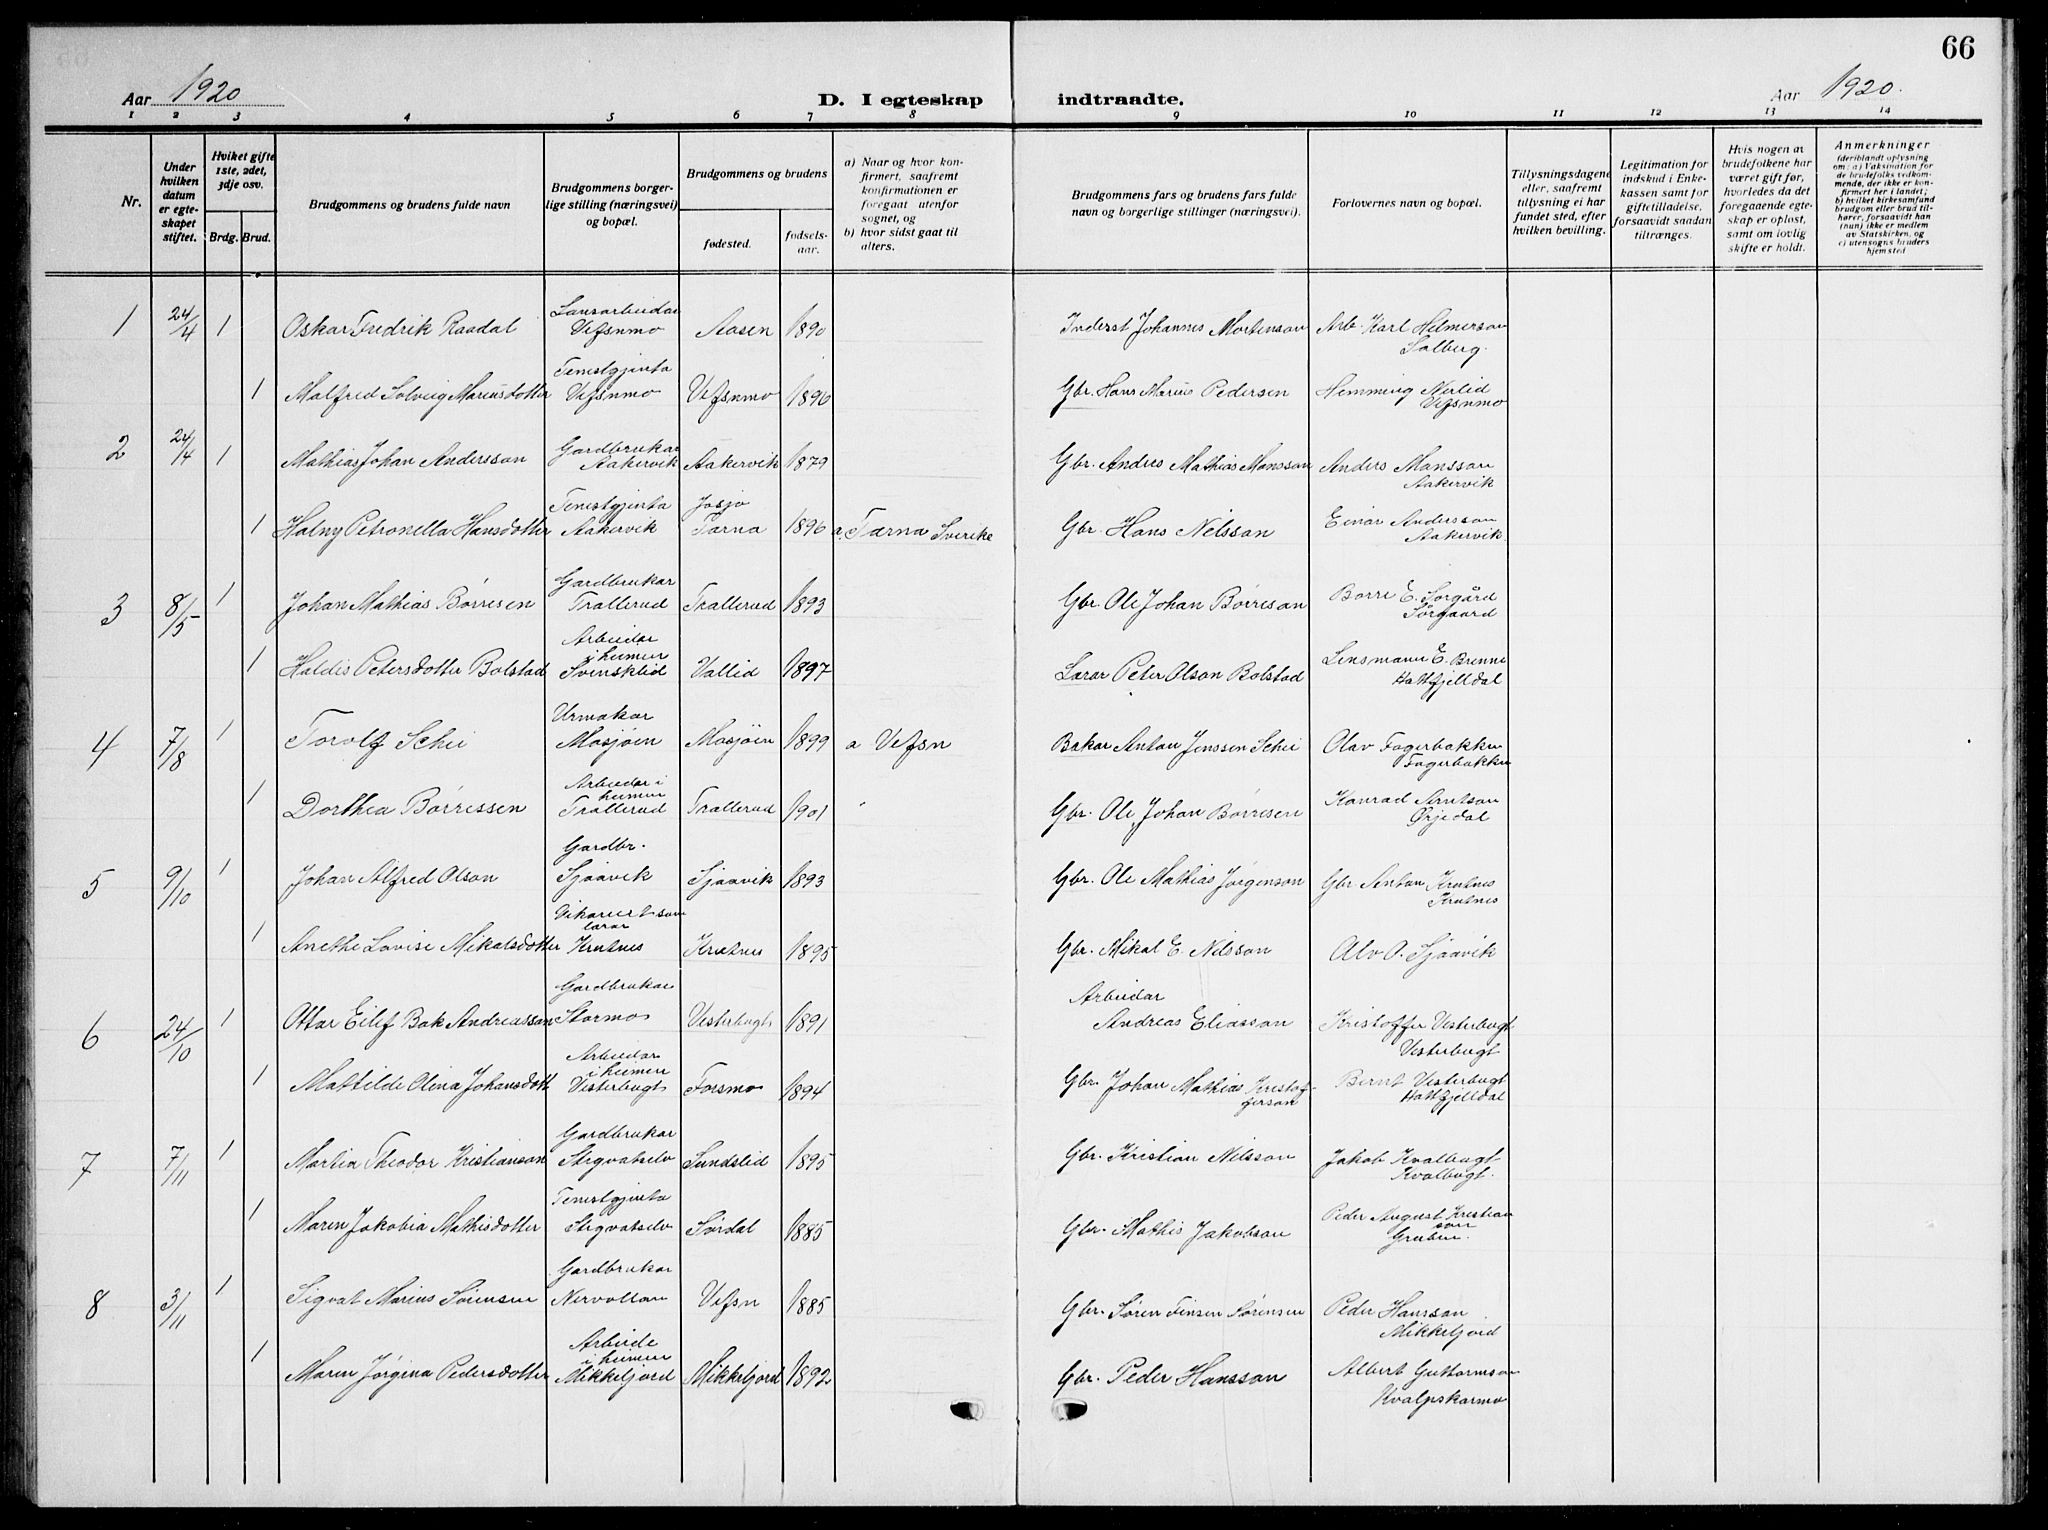 66
Aar 1920
D. I egteskap
indtraadte.
Aar 1920.
1 2 3 4 5 6 7 8 9 10 11 12 13 14
Nr.
Under hvilken datum er egteskapet stiftet.
Hviket gifte 1ste, 2det, 3dje osv.
Brdg. Brud.
Brudgommens og brudens fulde navn
Brudgommens borgerlige stilling (næringsvei) og bopæl.
Brudgommens og brudens
fødested.
fødselsaar.
a) Naar og hvor konfirmert, saafremt konfirmationen er foregaat utenfor sognet, og
b) hvor sidst gaat til alters.
Brudgommens fars og brudens fars fulde navn og borgerlige stillinger (næringsvei).
Forlovernes navn og bopæl.
Tillysningsdagene eller, saafremt tillysning ei har fundet sted, efter hvilken bevilling.
Legitimation for indskud i Enkekassen samt for giftetilladelse, forsaavidt saadan tiltrænges.
Hvis nogen av brudefolkene har været gift før, hvorledes da det foregaaende egteskap er opløst, samt om lovlig skifte er holdt.
Anmerkninger
(deriblandt oplysning om: a) Vaksination for de brudefolks vedkommende, der ikke er konfirmert her i landet; b) hvilket kirkesamfund brudgom eller brud tilhører, forsaavidt han (hun) ikke er medlem av Statskirken, og c) utensogns bruders hjemsted
1 24/4 1 Oskar Fredrik Raadal Vefsnmo Aasen 1890 Inderst Johannes Mortenson Arb. Karl Helmerson Solberg.
1 Malfred Solveig Mariusdotter Tenestgjenta Vefsnmo Vefsnmo 1896 Gbr. Hans Marius Pedersen Hemming Nerlid Vefsnmo
2 24/4 1 Mathias Johan Andersson Gardbrukar Aakervik Aakervik 1879 Gbr. Andres Mathias Monsson Anders Monsson Aakervik
1 Halny Petronella Hansdotter Tenestgjenta Aakervik Josjo Tarna 1896 a. Tarna Sverike Gbr. Hans Nelsson Einar Andersson Aakervik
3 8/5 1 Johan Mathias Børresen Gardbrukar Trallerud Trallerud 1893 Gbr. Ole Johan Børreson Børre E. Sørgård Sørgaard
1 Haldis Petersdotter Bolstad Arbeidar i heimen Svensklid Vallid 1897 Lærar Peter Olson Bolstad Lensmann E. Brenne Hattfjelldal
4 7/8 1 Torolf Schei Urmakar Mosjøen Mosjöen 1899 a Vefsn Bakar Anton Jenssen Schei Olav Fagerbakke Fagerbakke
1 Dorthea Børressen Arbeidar i heimen Trallerud Trallerud 1901 " Gbr. Ole Johan Børresen Konrad Arntson Ørjedal
5 9/10 1 Johan Alfred Olson Gardbr. Sjaavik Sjaavik 1893 Gbr. Ole Mathias Jørgenson Gbr Anton Krutnes Krutnes
1 Anethe Lovise Mikalsdotter Vikariert som lærar Krutnes Krutnes 1895 Gbr. Mikal E. Nilsson Alv O. Sjaavik
6 24/10 1 Ottar Eilef Bak Andreasson Gardbrukar Stormo Vesterbugt 1891 Arbeidar Andreas Eliasson Kristoffer Vesterbugt Vesterbugt
1 Mathilde Olina Johansdott Arbeidar i heimen Vesterbugt Forsmo 1894 Gbr. Johan Mathias Kristofferson Bernt Vesterbugt Hattfjelldal
7 7/11 1 Martin Theodor Kristianson Gardbrukar Stegvatselv Sundslid 1895 Gbr. Kristian Nilsson Jakob Kvalbugt Kvalbugt.
1 Maren Jakobia Mathisdotter Tenestgjenta Stegvatselv Sørdal 1885 Gbr. Mathis Jakobson Peder August Kristianson Gruben.
8 3/11 1 Sigvat Marius Sørensen Gardbrukar Nervollan Vefsn 1885 Gbr. Søren Finsen Sørensen Peder Hansson Mikkeljord
1 Maren Jørgina Pedersdotter Arbeide i heimen Mikkeljord Mikkeljord 1892 Gbr. Peder Hansson Albert Guttormson Kvalpskarmo